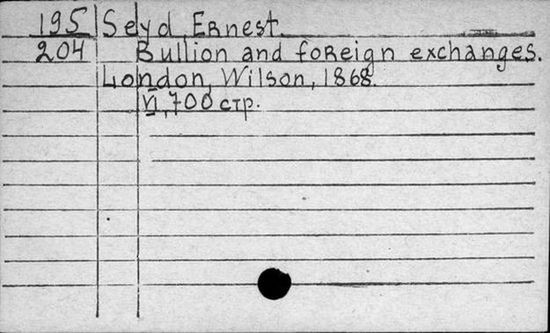 195 Seyd, Ernest.
204 Bullion and foreign exchanges.
London, Wilson, 1868.
VI, 700 стр.